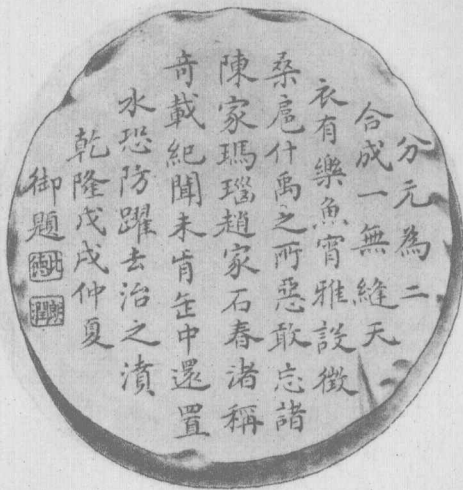 分元為二
合成一無縫天
衣有樂魚宵雅設徵
桑扈什禹之所惡敢忘諸
陳家瑪瑙趙家石春渚稱
奇載紀聞未肯缶中還置
水恐防躍去治之漬
乾隆戊戌仲夏
御題
比德
朗潤